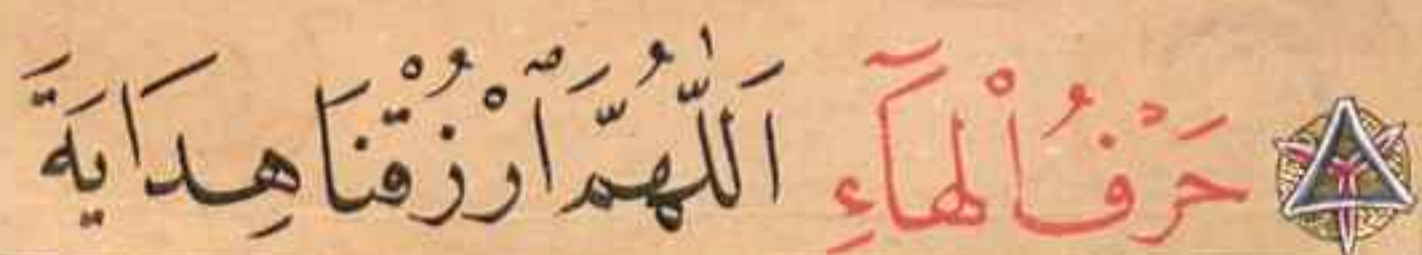 حَرْفُ الْهَآءِ اَللّٰهُمَّ ارْزُقْنَا هِدَايَةَ